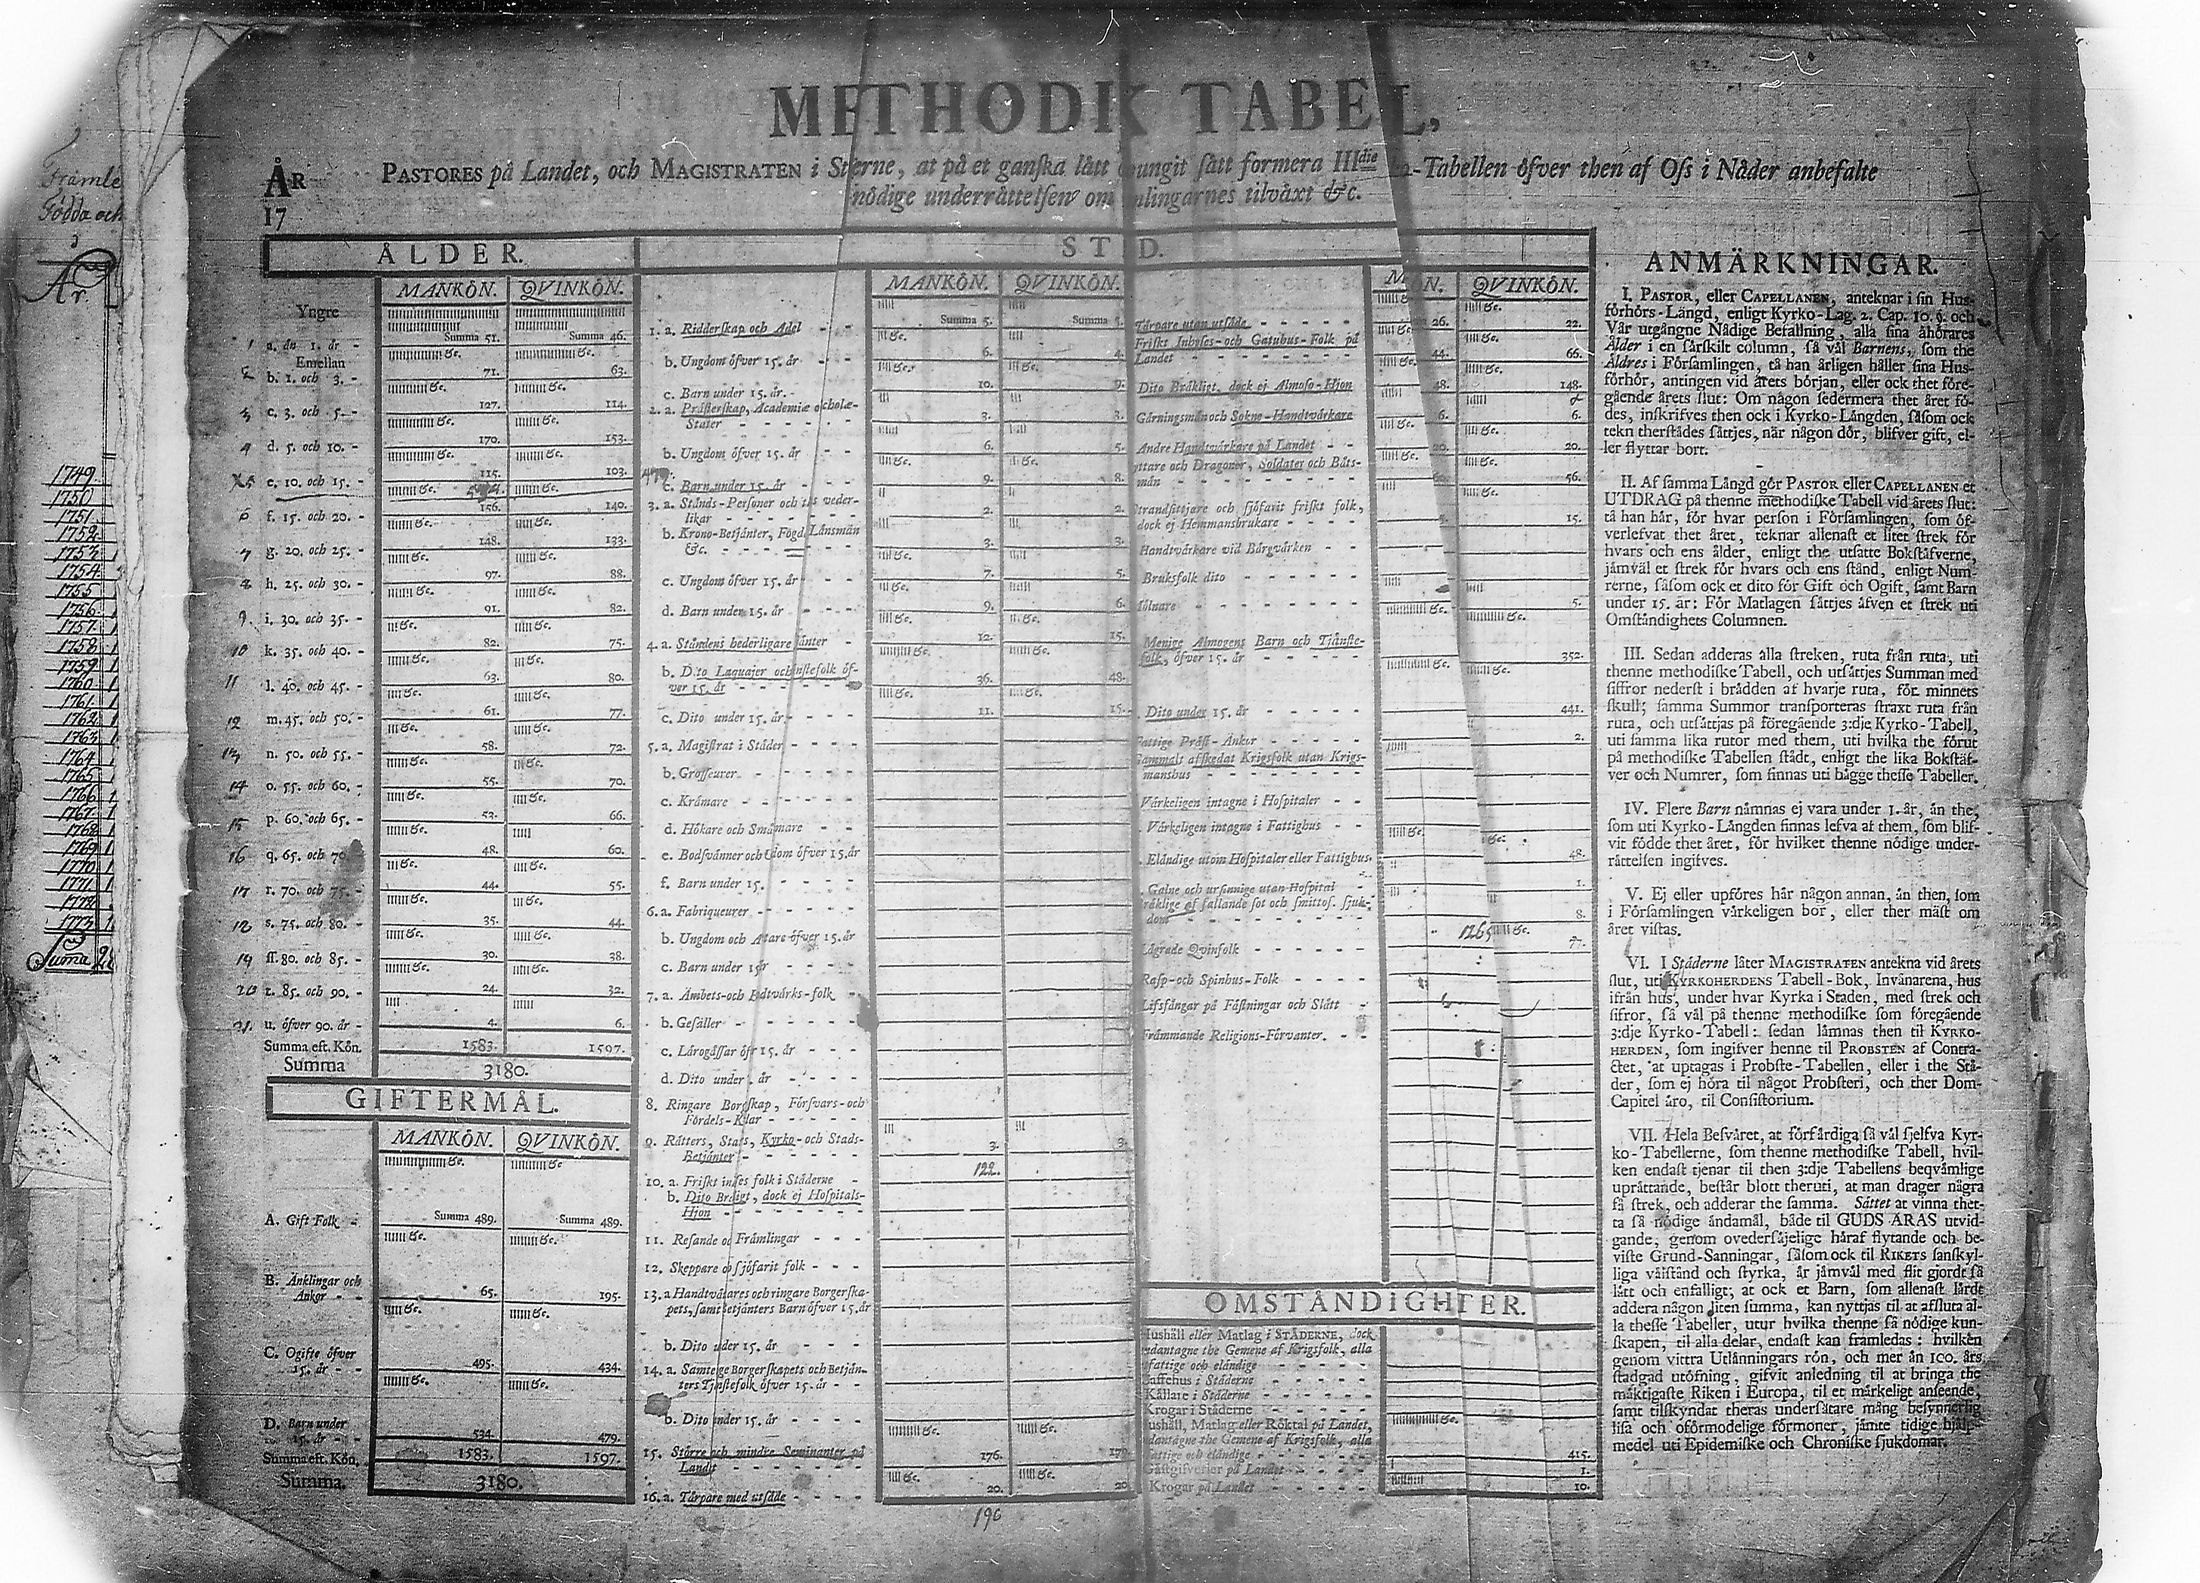 METHODIK TABEL,
ÅR
17
PASTORES på Landet, och MAGISTRATEN i Stærne, at på et ganska lätt sått formera III die -Tabellen öfver then af Oss i Nåder anbefalte
nödige underråttelsen om tilväxt &c.
ÅLDER.
MANKÖN. QVINKÖN.
Yngre
Summa 51. Summa 46.
1 a. än 1. år -
Emellan
2 b. 1. och 3. - 71. 63.
3 c. 3. och 5. - 127. 114.
4 d. 5. och 10. - 170. 153.
5 e. 10. och 15. - 115. 103.
6 f. 15. och 20. - 156. 140.
7 g. 20. och 25. - 148. 133.
8 h. 25. och 30. - 97. 88.
9 i. 30. och 35. - 91. 82.
10 k. 35. och 40. - 82. 75.
11 l. 40. och 45. - 63. 80.
12 m. 45. och 50. - 61. 77.
13 n. 50. och 55. - 58. 72.
14 o. 55. och 60. - 55. 70.
15 p. 60. och 65. - 53. 66.
16 q. 65. och 70. 48. 60.
17 r. 70. och 75. - 44. 55.
s. 75. och 80. - 35. 44.
19 ss. 80. och 85. - 30. 38.
20 t. 85. och 90. - 24. 32.
21 u. öfver 90. år - 4. 6.
Summa eft. Kön. 1583. 1597.
Summa 3180.
GIFTERMÅL.
MANKÖN. QVINKÖN.
A. Gift Folk - Summa 489. Summa 489.
B. Änklingar och
Änkor - - 65. 195.
C. Ogifte öfver
15. år - - 495. 434.
D. Barn under
15. år - - 534. 479.
Summa eft. Kön. 1583. 1597.
Summa. 3180.
MANKÖN. QVINKÖN.
1. a. Ridderskap och Adel - - Summa 5. Summa 5.
b. Ungdom öfver 15. år - - 6. 4.
c. Barn under 15. år. - 10. 9.
2. a. Prästerskap, Academiæ
Stater - - 3. 3.
b. Ungdom öfver 15. år - - 6. 5.
c. Barn under 15. år - - 9. 8.
3. a. Stånds-Personer och veder-
likar - - 2. 2.
b. Krono-Betjänter, Fogd. Länsmän
&c. - - 3. 3.
c. Ungdom öfver 15. år - - 7. 5.
d. Barn under 15. år - - 9. 6.
4. a. Ståndens hederligare - 12. 15.
b. Dito Laquajer och öf-
ver 15. år - - 36. 48.
c. Dito under 15. år - - 11. 15.
5. a. Magistrat i Städer - -
b. Grosseurer - -
c. Krämare - -
d. Hökare och - -
e. Bodsvänner och öfver 15. år
f. Barn under 15. - -
6. a. Fabriqueurer - -
b. Ungdom och öfver 15. år
c. Barn under - -
7. a. Ämbets-och -folk -
b. Gesäller - -
c. 15. år - -
d. Dito under år - -
8. Ringare Borgskap, Försvars-och
Fördels-Karlar - -
9. Rätters, Kyrko-och Stads-
Betjänter - - 3. 3.
122.
10. a. Friskt folk i Städerne -
b. Dito dock ej Hospitals-
Hjon - -
11. Resande Främlingar - -
12. Skeppare sjöfarit folk - -
13. a Handtvärkares och ringare Borgerska-
pets, samt Betjänters Barn öfver 15. år
b. Dito under 15. år - -
14. a. Borgerskapets och Betjän-
ters Tjenstefolk öfver 15. år - -
b. Dito under 15. år - -
15. Större och mindre på
Landet - - 176. 179.
16. a. Tårpare med utsäde - - 20. 20
196
QVINKÖN.
Tårpare utan utsäde - - 26. 22.
Friskt Inhyses-och Gatuhus-Folk på
Landet - - 44. 66.
Dito Bräkligt, dock ej Almoso-Hjon 48. 148.
Gärningsmän och Sokne-Handtvärkare 6. 6.
Andre Handtvärkare på Landet - - 20. 20.
och Dragoner, Soldater och Båts-
män - - 56.
och sjöfarit friskt folk,
dock ej Hemmansbrukare - - 15.
Handtvärkare vid Bärgvärken - -
Bruksfolk dito - -
- - 5.
Menige Almogens Barn och Tjänste-
folk, öfver 15. år - - 352.
Dito under 15. år - - 441.
Präst-Änkor - - 2.
afskedat Krigsfolk utan Krigs-
manshus - -
Värkeligen intagne i Hospitaler - -
Värkeligen intagne i Fattighus - -
Eländige utom Hospitaler eller Fattighus. 48.
Galne och ursinnige utan Hospital - 1.
af fallande sot och smittos. sjuk-
dom - - 8.
1265
Lägrade Qvinfolk - - 77.
Rasp-och Spinhus-Folk - -
Lifsfångar på Fästningar och Slått - -
Främmande Religions-Förvanter. - -
OMSTÄNDIGHETER.
Hushåll eller Matlag i STÄDERNE, dock
the Gemene af Krigsfolk, alla
fattige och eländige - -
i Städerne - -
Källare i Städerne - -
Krogar i Städerne - -
Matlag eller Röktal på Landet,
the Gemene af Krigsfolk, alla
fattige och eländige - - 415.
på Landet - - 1.
Krogar på Landet - - 10.
ANMÄRKNINGAR.
I. PASTOR, eller CAPELLANEN, anteknar i sin Hus-
förhörs-Längd, enligt Kyrko-Lag. 2. Cap. 10. §. och
Vår utgångne Nådige Befallning, alla sina åhörares
Ålder i en särskilt column, så väl Barnens, som the
Äldres i Församlingen, tå han årligen håller sina Hus-
förhör, antingen vid årets början, eller ock thet före-
gående årets slut: Om någon sedermera thet året fö-
des, inskrifves then ock i Kyrko-Längden, såsom ock
tekn therstådes såttjes, när någon dör, blifver gift, el-
ler flyttar bort.
II. Af samma Längd gör PASTOR eller CAPELLANEN et
UTDRAG på thenne methodiske Tabell vid årets slut:
tå han här, för hvar person i Församlingen, som öf-
verlefvat thet året, teknar allenast et litet strek för
hvars och ens ålder, enligt the utsatte Bokstäfverne,
jämväl et strek för hvars och ens stånd, enligt Num-
rerne, såsom ock et dito för Gift och Ogift, samt Barn
under 15. år: För Matlagen såttjes äfven et strek uti
Omständighets Columnen.
III. Sedan adderas alla streken, ruta från ruta, uti
thenne methodiske Tabell, och utsättjes Summan med
siffror nederst i brädden af hvarje ruta, för minnets
skull; samma Summor transporteras straxt ruta från
ruta, och utsåttjas på föregående 3:dje Kyrko-Tabell,
uti samma lika rutor med them, uti hvilka the förut
på methodiske Tabellen stådt, enligt the lika Bokstäf-
ver och Numrer, som finnas uti bägge thesse Tabeller.
IV. Flere Barn nämnas ej vara under 1. år, än the,
som uti Kyrko-Längden finnas lefva af them, som blif-
vit födde thet året, för hvilket thenne nödige under-
råttelsen ingifves.
V. Ej eller upföres här någon annan, än then, som
i Församlingen värkeligen bor, eller ther mäst om
året vistas.
VI. I Städerne låter MAGISTRATEN antekna vid årets
slut, uti KYRKOHERDENS Tabell-Bok, Invånarena, hus
ifrån hus, under hvar Kyrka i Staden, med strek och
sifror, så väl på thenne methodiske som föregående
3:dje Kyrko-Tabell: sedan lämnas then til KYRKO-
HERDEN, som ingifver henne til PROBSTEN af Contra-
ctet, at uptagas i Probste-Tabellen, eller i the Stä-
der, som ej höra til något Probsteri, och ther Dom-
Capitel äro, til Consistorium.
VII. Hela Besväret, at förfärdiga så väl sjelfva Kyr-
ko-Tabellerne, som thenne methodiske Tabell, hvil-
ken endast tjenar til then 3:dje Tabellens beqvämlige
upråttande, består blott theruti, at man drager några
få strek, och adderar the samma. Såttet at vinna thet-
ta så nödige ändamål, både til GUDS ÄRAS utvid-
gande, genom ovedersäjelige häraf flytande och be-
viste Grund-Sanningar, såsom ock til RIKETS sanskyl-
liga välstånd och styrka, är jämväl med flit gjordt så
lätt och enfalligt; at ock et Barn, som allenast lärdt
addera någon liten summa, kan nyttjas til at afsluta al-
la thesse Tabeller, utur hvilka thenne så nödige kun-
skapen, til alla delar, endast kan framledas: hvilken
genom vittra Utlänningars rön, och mer än 100. års
stadgad utöfning, gifvit anledning til at bringa the
mäktigaste Riken i Europa, til et märkeligt anseende,
samt tilskyndat theras undersåtare mång besynnerlig
lisa och oförmodelige förmoner, jämte tidige hjälp-
medel uti Epidemiske och Chroniske sjukdomar.
Födda och
År.
1749
1750
1751
1752
1753
1754
1755
1756
1757
1758
1759
1760
1761
1762
1763
1764
1765
1766
1767
1768
1769
1770
1771
1772
1773
Suma